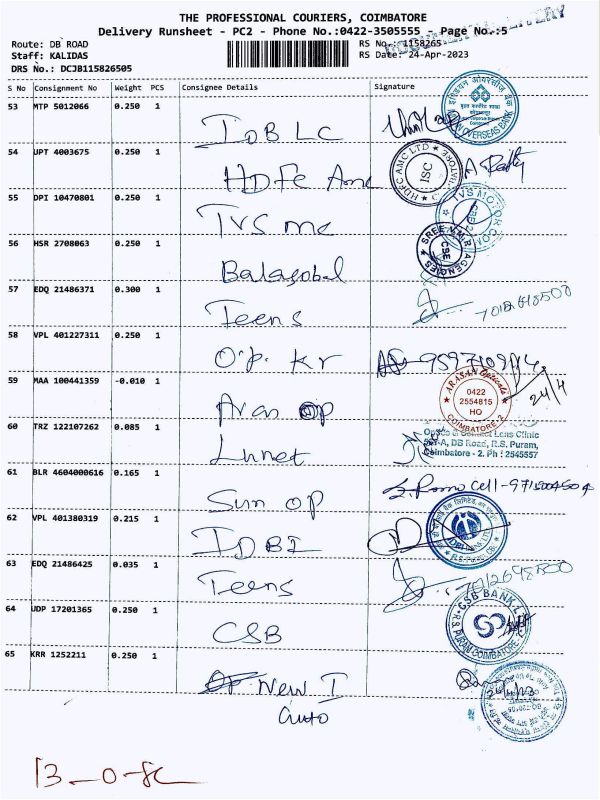 THE PROFESSIONAL COURIERS, COIMBATORE
Delivery Runsheet - PC2 - Phone No.:0422-3505555 - Page No.:5
Route: DB ROAD RS No.: 1158265
Staff: KALIDAS RS Date: 24-Apr-2023
DRS No.: DCJB115826505
S No Consignment No Weight PCS Consignee Details Signature
53 MTP 5012066 0.250 1
IOB LC
54 UPT 4003675 0.250 1
HDFC AMC
HDFC AMC LTD ISC
55 DPI 10470801 0.250 1
TVS mc
TVS MOTOR COM
56 HSR 2708063 0.250 1
Balagobal
SREE AGENCIES CBE
57 EDQ 21486371 0.300 1
Teens
58 VPL 401227311 0.250 1
O.P. Kr
59 MAA 100441359 -0.010 1
Aran OP
ARASAN Opticals
0422
2554815
HO
COIMBATORE-2
24/4
60 TRZ 122107262 0.085 1
Lens Clinic
DB Road, R.S. Puram,
Coimbatore - 2. Ph : 2545557
61 BLR 4604000616 0.165 1
Sun OP
62 VPL 401380319 0.215 1
IDBI
63 EDQ 21486425 0.035 1
Teens
64 UDP 17201365 0.250 1
CSB
CSB BANK
R.S. PURAM COIMBATORE
65 KRR 1252211 0.250 1
New I
auto